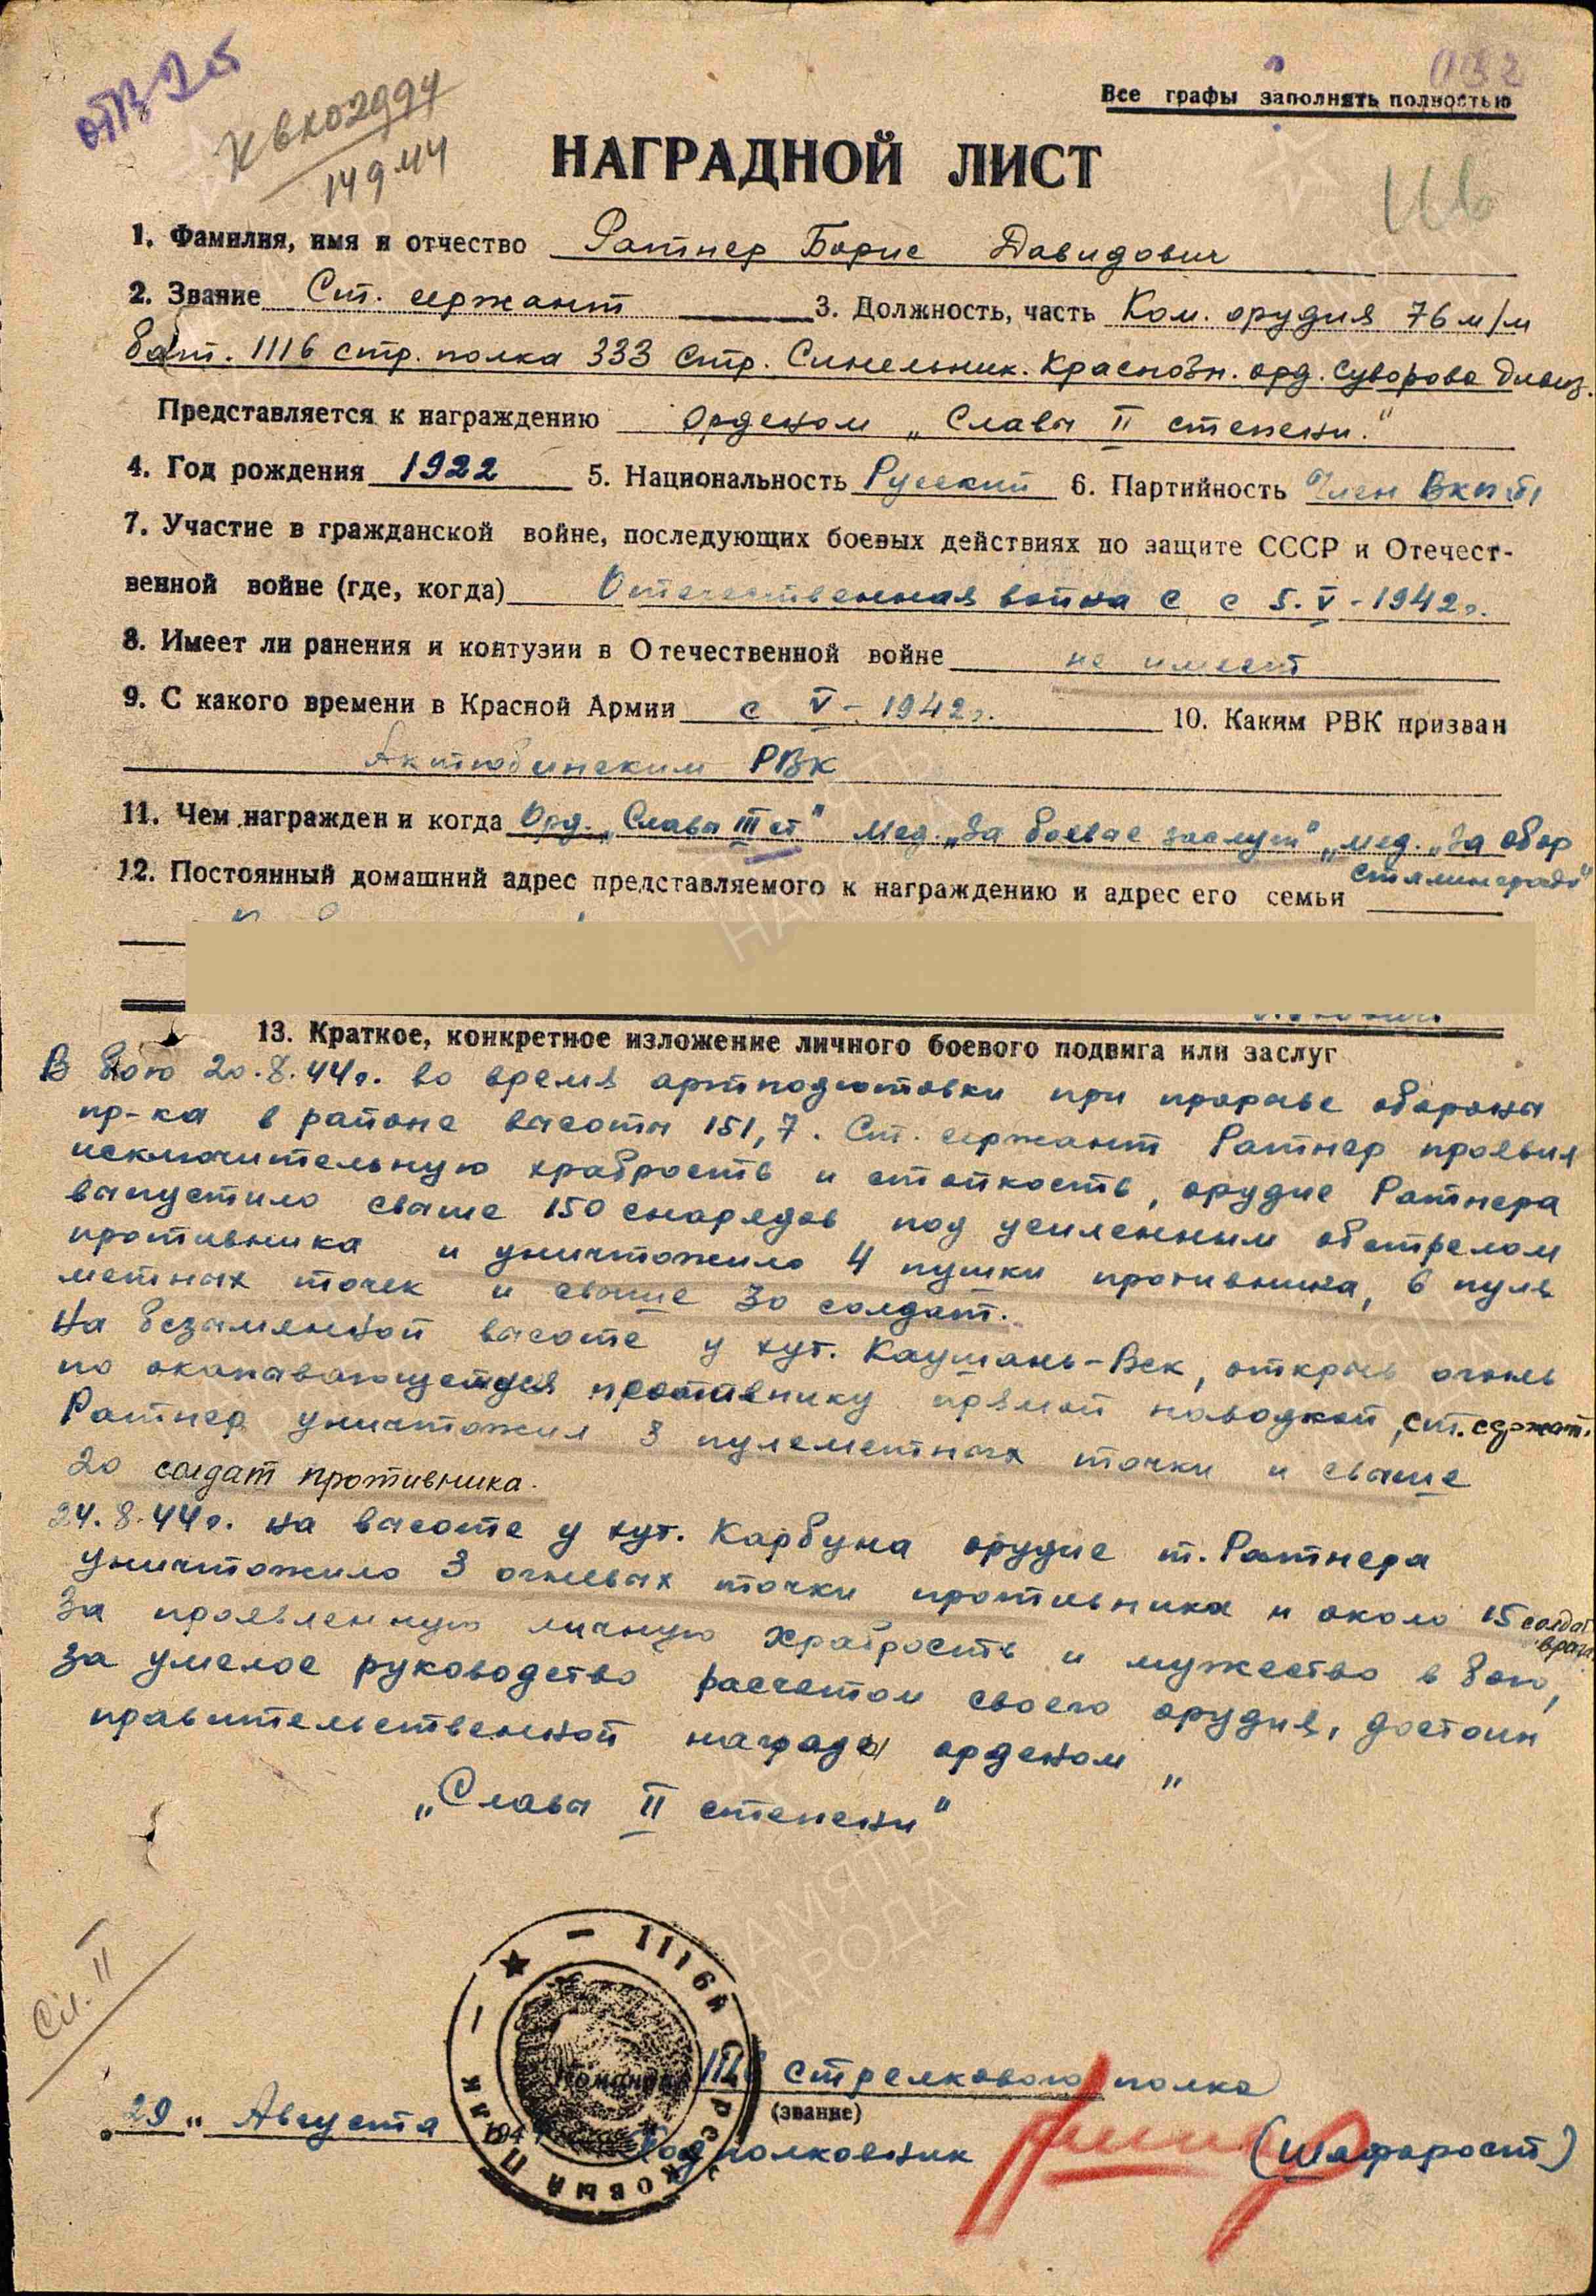 отв 25
К вх 02994
14 9 44
Все графы заполнять полностью
НАГРАДНОЙ ЛИСТ
1. Фамилия, имя и отчество Ратнер Борис Давидович
2. Звание Ст. сержант 3. Должность, часть Ком. орудия 76 м/м
бат. 1116 стр. полка 333 Стр. Синельник. Краснозн. орд. Суворова дивиз.
Представляется к награждению орденом „Славы II степени."
4. Год рождения 1922 5. Национальность Русский 6. Партийность Член ВКП(б)
7. Участие в гражданской войне, последующих боевых действиях по защите СССР и Отечест-
венной войне (где, когда) Отечественная война с с 5.V-1942г.
8. Имеет ли ранения и контузии в Отечественной войне не имеет
9. С какого времени в Красной Армии с V-1942г. 10. Каким РВК призван
Актюбинским РВК
11. Чем награжден и когда Орд. „Славы III ст" мед. „За боевые заслуги" „мед. „За обор
Сталинграда"
12. Постоянный домашний адрес представляемого к награждению и адрес его семьи
13. Краткое, конкретное изложение личного боевого подвига или заслуг
В бою 20.8.44г. во время артподготовки при прорыве обороны
пр-ка в районе высоты 151,7. Ст. сержант Ратнер проявил
исключительную храбрость и стойкость, орудие Ратнера
выпустило свыше 150 снарядов под усиленным обстрелом
противника и уничтожило 4 пушки противника, 6 пуле
метных точек и свыше 30 солдат.
На безымянной высоте у хут. Каушань-Век, открыв огонь
по окапывающемуся противнику прямой наводкой, ст. сержант
Ратнер уничтожил 3 пулеметных точки и свыше
20 солдат противника.
24.8.44г. на высоте у хут. Карбуна орудие т. Ратнера
уничтожило 3 огневых точки противника и около 15 солдат
врага
За проявленную личную храбрость и мужество в бою,
за умелое руководство расчетом своего орудия, достоин
правительственной награды орденом „
„Славы II степени"
Сл. II
1116й СТРЕЛКОВЫЙ ПОЛК
Командир 1116 стрелкового полка
(звание)
„29" Августа 1944
Подполковник (Шафорост)
ПАМЯТЬ
НАРОДА